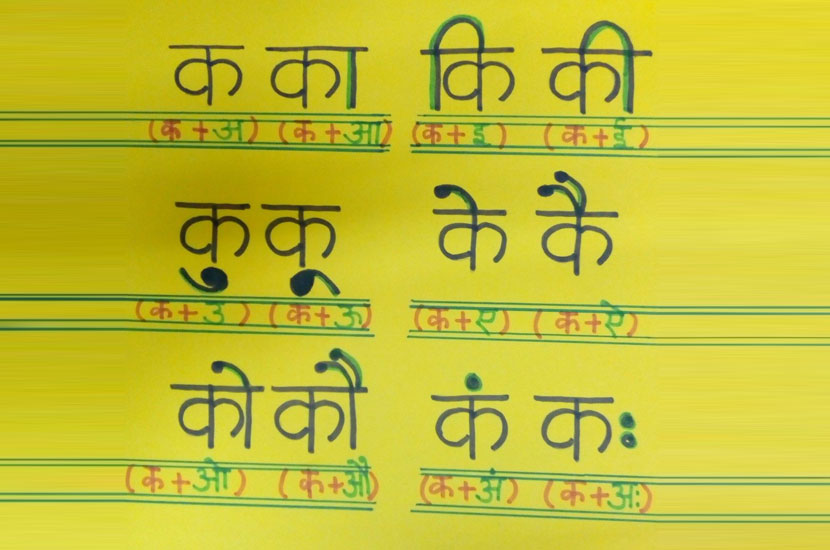 क का कि की
(क + अ) (क + आ) (क + इ) (क + ई)
कु कू के कै
(क + उ) (क + ऊ) (क + ए) (क + ऐ)
को कौ कं कः
(क + ओ) (क + औ) (क + अं) (क + अः)